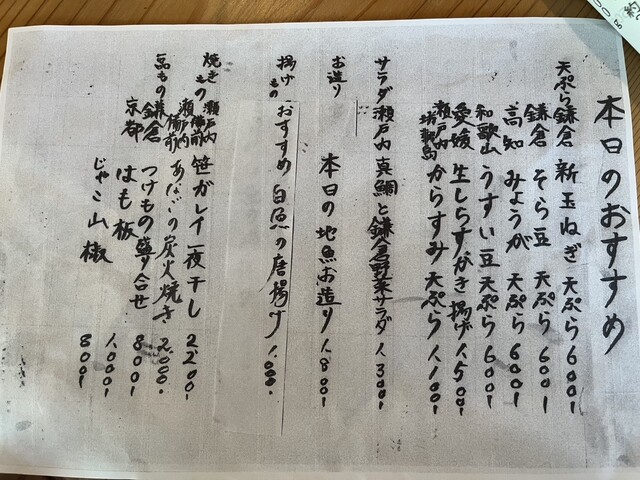 本日のおすすめ
天ぷら 鎌倉 新玉ねぎ 天ぷら 600
鎌倉 そら豆 天ぷら 600
高知 みょうが 天ぷら 600
和歌山 うすい豆 天ぷら 600
愛媛 生しらすがき揚げ 1,500
瀬戸内 からすみ 天ぷら 1,100
サラダ 瀬戸内 真鯛と鎌倉野菜サラダ 1,300
お造り 本日の地魚お造り 1,800
揚げもの おすすめ 白魚の唐揚げ 1,000
焼きもの 瀬戸内備前 笹ガレイ一夜干し 2200
瀬戸内備前 あなごの炭火焼き 2,000
一品もの 鎌倉 つけもの盛り合せ 800
京都 はも板 1,000
じゃこ山椒 800